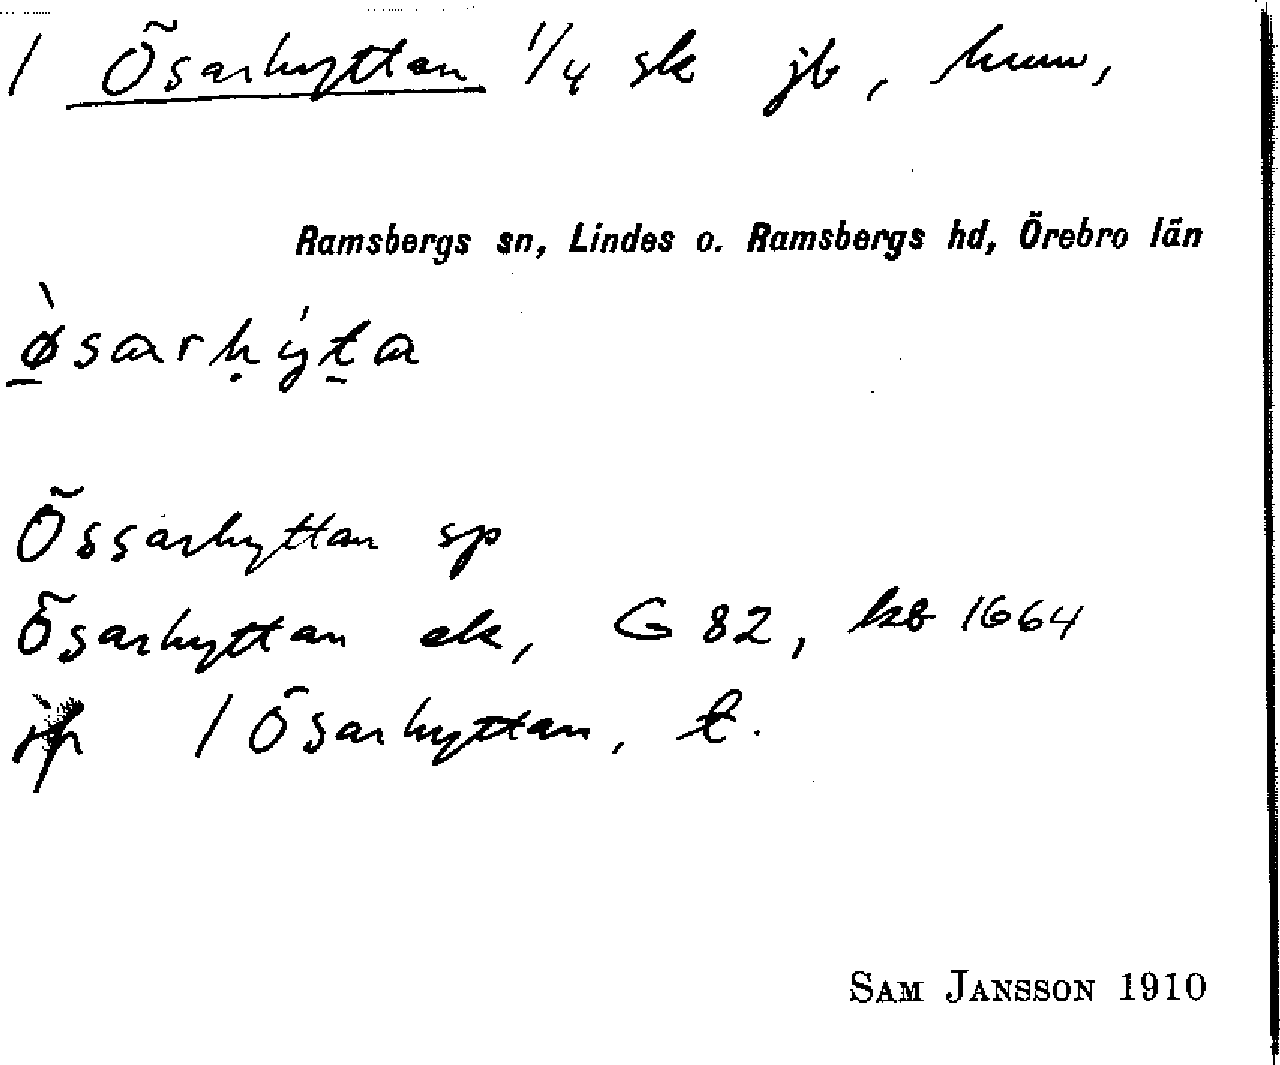 1 Ösarhyttan 1/4 sk jb, hmm,
Ramsbergs sn, Lindes o. Ramsbergs hd, Örebro län
ø̀sarḥýta
Össarhyttan sp
Ösarhyttan ek, G 82, kb 1664
1 Ösarhyttan, t.
SAM JANSSON 1910